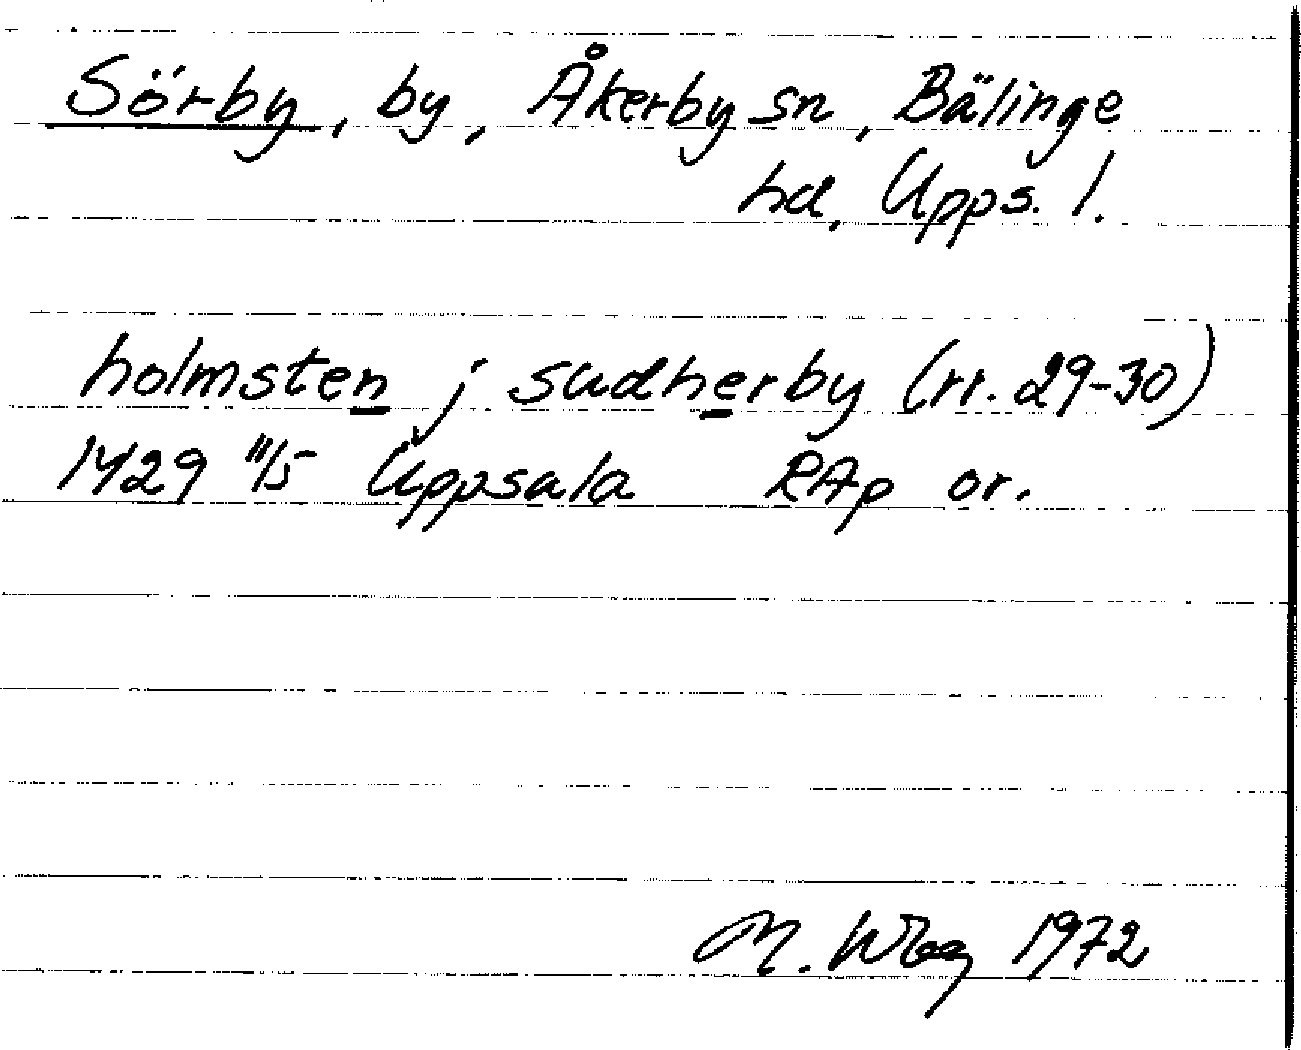 Sörby, by, Åkerby sn, Bälinge
hd, Upps. l.
holmsten j sudherby (rr. 29-30)
1429 11/5 Uppsala RAp or.
M. 1972